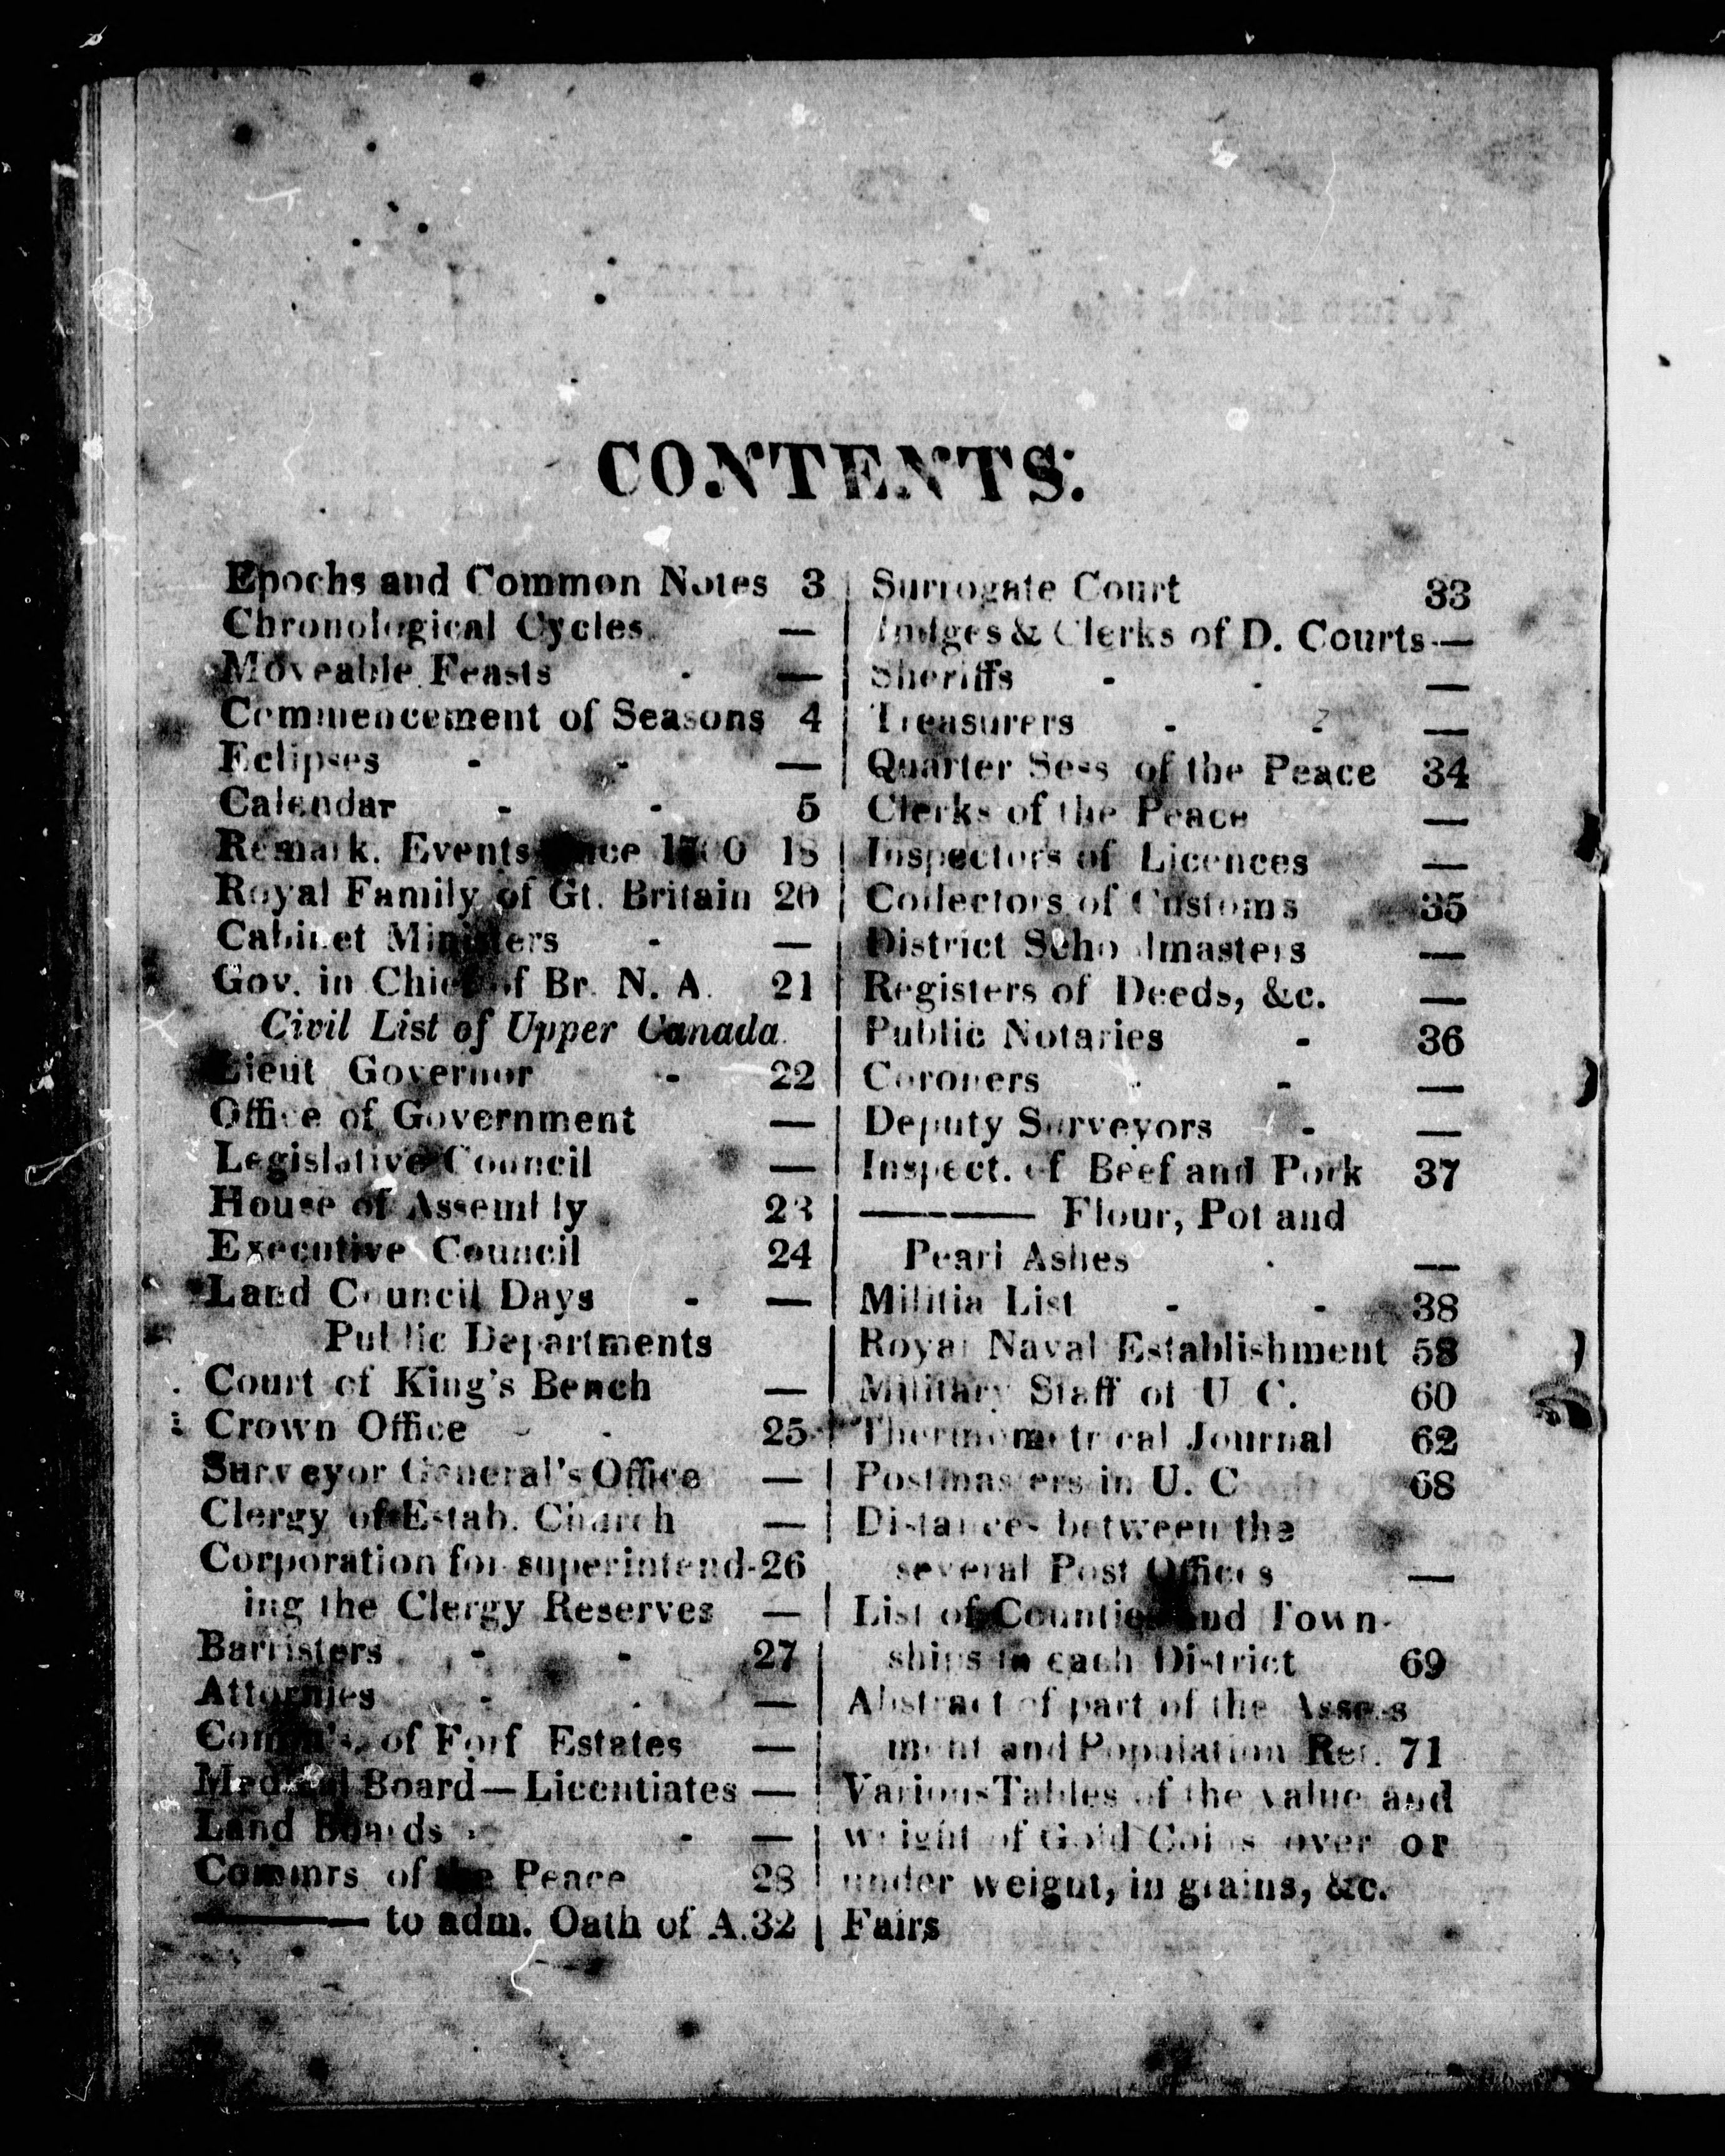 CONTENTS.
Epochs and Common Notes 3
Chronological Cycles —
Moveable Feasts - —
Commencement of Seasons 4
Eclipses - - —
Calendar - - 5
Remark. Events 18
Royal Family of Gt. Britain 20
Cabinet Ministers - —
Gov. in Chief of Br. N. A. 21
Civil List of Upper Canada.
Lieut Governor - 22
Office of Government —
Legislative Council —
House of Assembly 23
Executive Council 24
Land Council Days - —
Public Departments
Court of King's Bench —
Crown Office - - 25
Surveyor General's Office —
Clergy of Estab. Church —
Corporation for superintend- 26
ing the Clergy Reserves —
Barristers - - 27
Attornies - - —
of Forf Estates —
Medical Board—Licentiates —
Land Boards - - —
Commrs of the Peace 28
——— to adm. Oath of A. 32
Surrogate Court 33
Judges & Clerks of D. Courts —
Sheriffs - - —
Treasurers - - —
Quarter Sess of the Peace 34
Clerks of the Peace —
Inspectors of Licences —
Collectors of Customs 35
District Schoolmasters —
Registers of Deeds, &c. —
Public Notaries - 36
Coroners - - —
Deputy Surveyors - —
Inspect. of Beef and Pork 37
——— Flour, Pot and
Pearl Ashes - —
Militia List - - 38
Royal Naval Establishment 58
Military Staff of U C. 60
Thermometrical Journal 62
Postmasters in U. C 68
Distances between the
several Post Offices —
List of Counties and Town-
ships in each District 69
Abstract of part of the Assess
ment and Population Ret. 71
Various Tables of the value and
weight of Gold Coins over or
under weight, in grains, &c.
Fairs